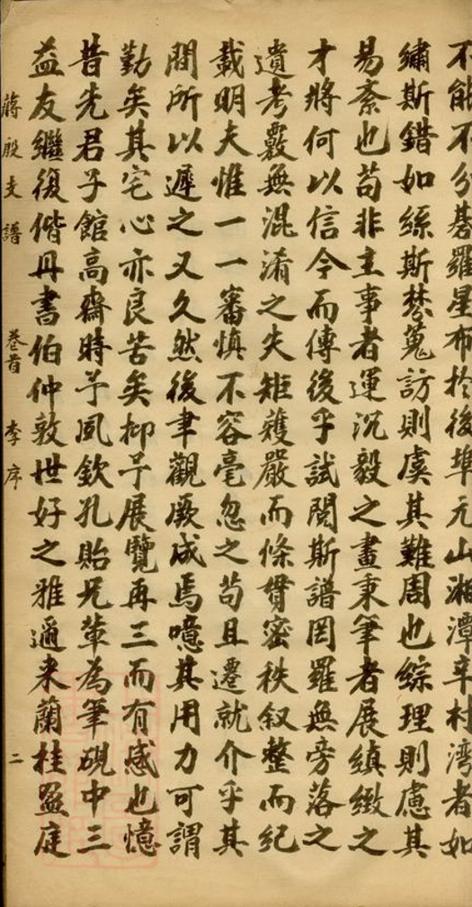 不能不分碁羅星布於後埠元山湘潭辛村灣者如
繡斯錯如絲斯棼蒐訪則虞其難周也綜理則慮其
易紊也苟非主事者運沉毅之畫秉筆者展縝緻之
才將何以信今而傳後乎試閱斯譜罔羅無旁落之
遺考覈無混淆之失矩矱嚴而條貫密秩叙整而紀
載明夫惟一一審慎不容毫忽之苟且遷就介乎其
間所以遲之又久然後聿觀厥成焉噫其用力可謂
勤矣其宅心亦良苦矣抑予展覽再三而有感也憶
昔先君子館高齋時予夙欽孔貽兄輩為筆硯中三
益友繼復偕丹書伯仲敦世好之雅邇来蘭桂盈庭
蔣殷支譜 卷首 李序 二